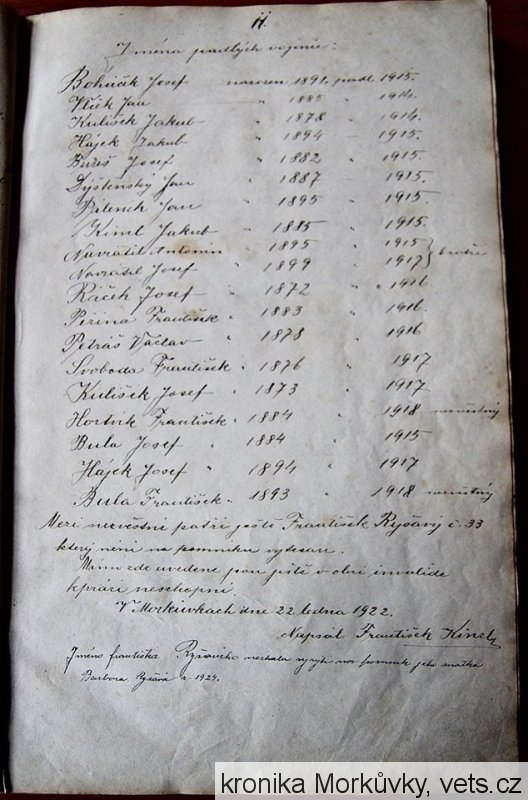 II.
Jména padlých vojínů:
Boháčk Josef narozen 1891, padl 1915.
Vlčk Jan " 1885 " 1914.
Kulíšek Jakub " 1878 " 1914.
Hájek Jakub " 1894 " 1915.
Bureš Josef " 1882 " 1915.
Jan " 1887 " 1915.
Bileník Jan " 1895 " 1915.
Kiml Jakub " 1885 " 1915.
Navrátil Antonín " 1895 " 1915
Navrátil Josef " 1899 " 1917 } bratři
Ráček Josef " 1872 " 1916
Peřina František " 1883 " 1916.
Petráš Václav " 1878 " 1916
Svoboda František " 1876 " 1917
Kulíšek Josef " 1873 " 1917.
František " 1884 " 1918 nezvěstný
Bula Josef " 1884 " 1915
Hájek Josef " 1894 " 1917
Bula František " 1893 " 1918 nezvěstný
Mezi nezvěstné patří ještě František Ryšavý č. 33
který není na pomníku vytesán.
Mimo zde uvedené jsou ještě v obci invalidé
kpráci neschopní.
V Morkůvkách dne 22 ledna 1922.
Napsal František
Jméno Františka Ryšavého nechala na pomník jeho matka
Barbora Ryšavá r. 1924.
kronika Morkůvky, vets.cz